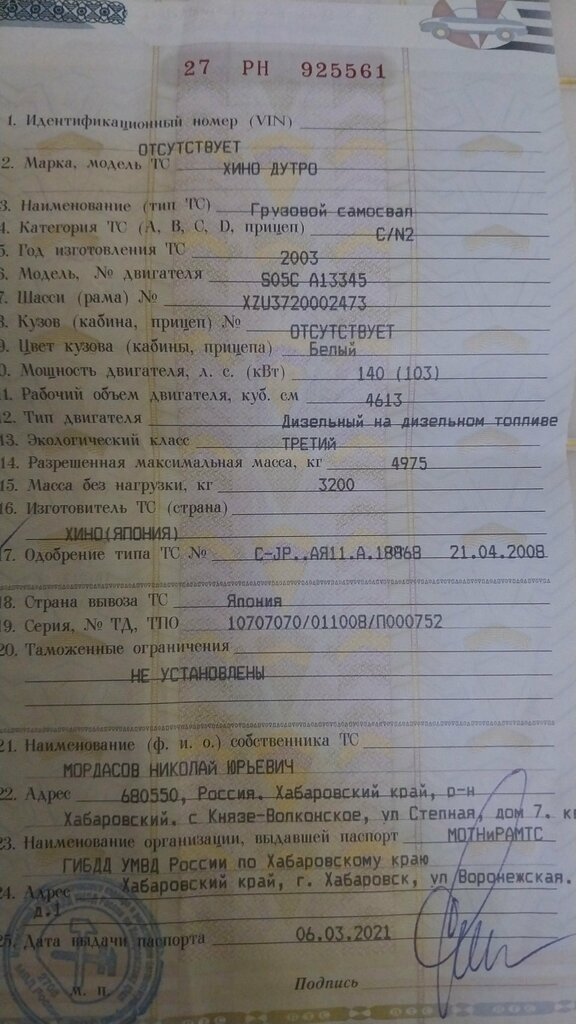 27 РН 925561
1. Идентификационный номер (VIN)
ОТСУТСТВУЕТ
2. Марка, модель ТС ХИНО ДУТРО
3. Наименование (тип ТС) Грузовой самосвал
4. Категория ТС (А, В, С, D, прицеп) C/N2
5. Год изготовления ТС 2003
6. Модель, № двигателя S05C A13345
7. Шасси (рама) № XZU3720002473
8. Кузов (кабина, прицеп) № ОТСУТСТВУЕТ
9. Цвет кузова (кабины, прицепа) Белый
0. Мощность двигателя, л. с. (кВт) 140 (103)
1. Рабочий объем двигателя, куб. см 4613
12. Тип двигателя Дизельный на дизельном топливе
13. Экологический класс ТРЕТИЙ
14. Разрешенная максимальная масса, кг 4975
15. Масса без нагрузки, кг 3200
16. Изготовитель ТС (страна)
ХИНО(ЯПОНИЯ)
17. Одобрение типа ТС № 21.04.2008
18. Страна вывоза ТС Япония
19. Серия, № ТД, ТПО 10707070/011008/П000752
20. Таможенные ограничения
НЕ УСТАНОВЛЕНЫ
21. Наименование (ф. и. о.) собственника ТС
МОРДАСОВ НИКОЛАЙ ЮРЬЕВИЧ
22. Адрес 680550, Россия. Хабаровский край, р-н
Хабаровский. с Князе-Волконское, ул Степная, дом 7. к
23. Наименование организации, выдавшей паспорт МОТНиРАМТС
ГИБДД УМВД России по Хабаровскому краю
24. Адрес Хабаровский край, г. Хабаровск, ул Воронежская.
д.1
25. Дата выдачи паспорта 06.03.2021
М. П. Подпись